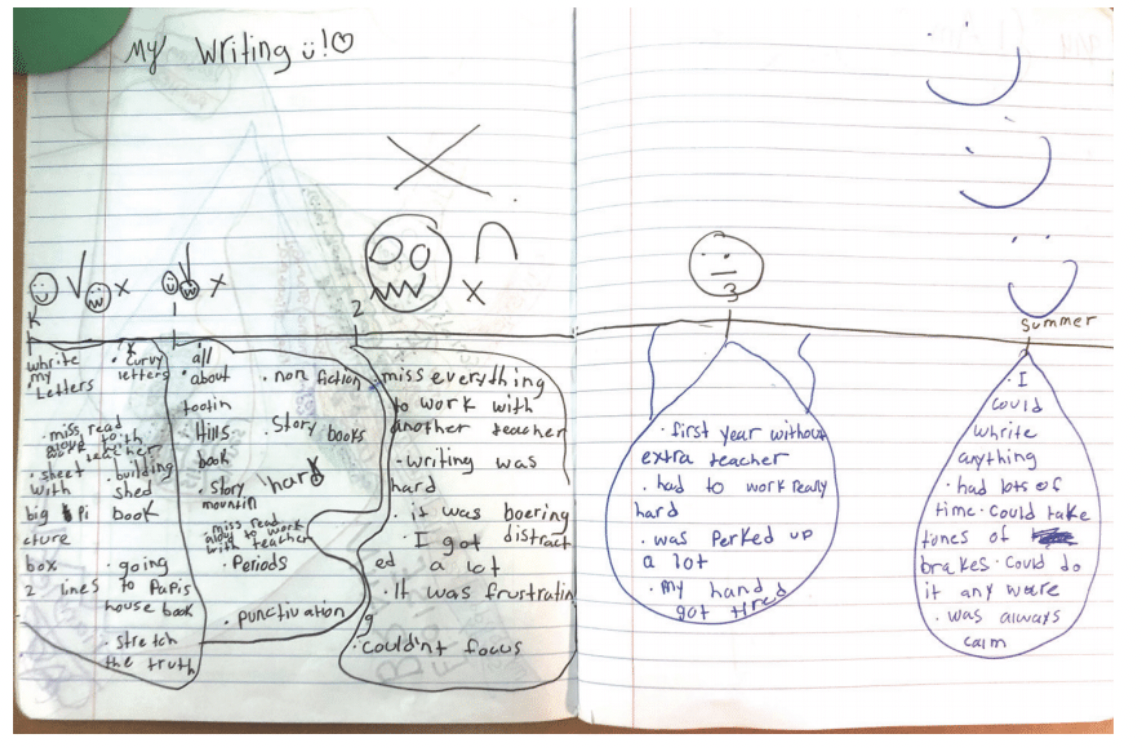 My Writing
K
1
2
3
Summer
whrite
my
Letters
• curvy
letters
• miss read
aloud to
work with
teacher
• sheet
with
big pi
cture
box
2 lines
• building
shed
book
• going
to Papis
house book
• stretch
the truth
all
about
tootin
Hills
book
• story
mountin
• miss read
aloud to work
with teacher
• Periods
• punctivation
• non fiction
• Story books
hard
miss everything
to work with
another teacher
• writing was
hard
• it was boering
• I got distract
ed a lot
• It was frustratin
g
• couldn't focus
• first year without
extra teacher
• had to work really
hard
• was Perked up
a lot
• My hand
got tired
• I
could
whrite
anything
• had lots of
time • Could take
tones of
brakes • Could do
it any ware
• was always
calm